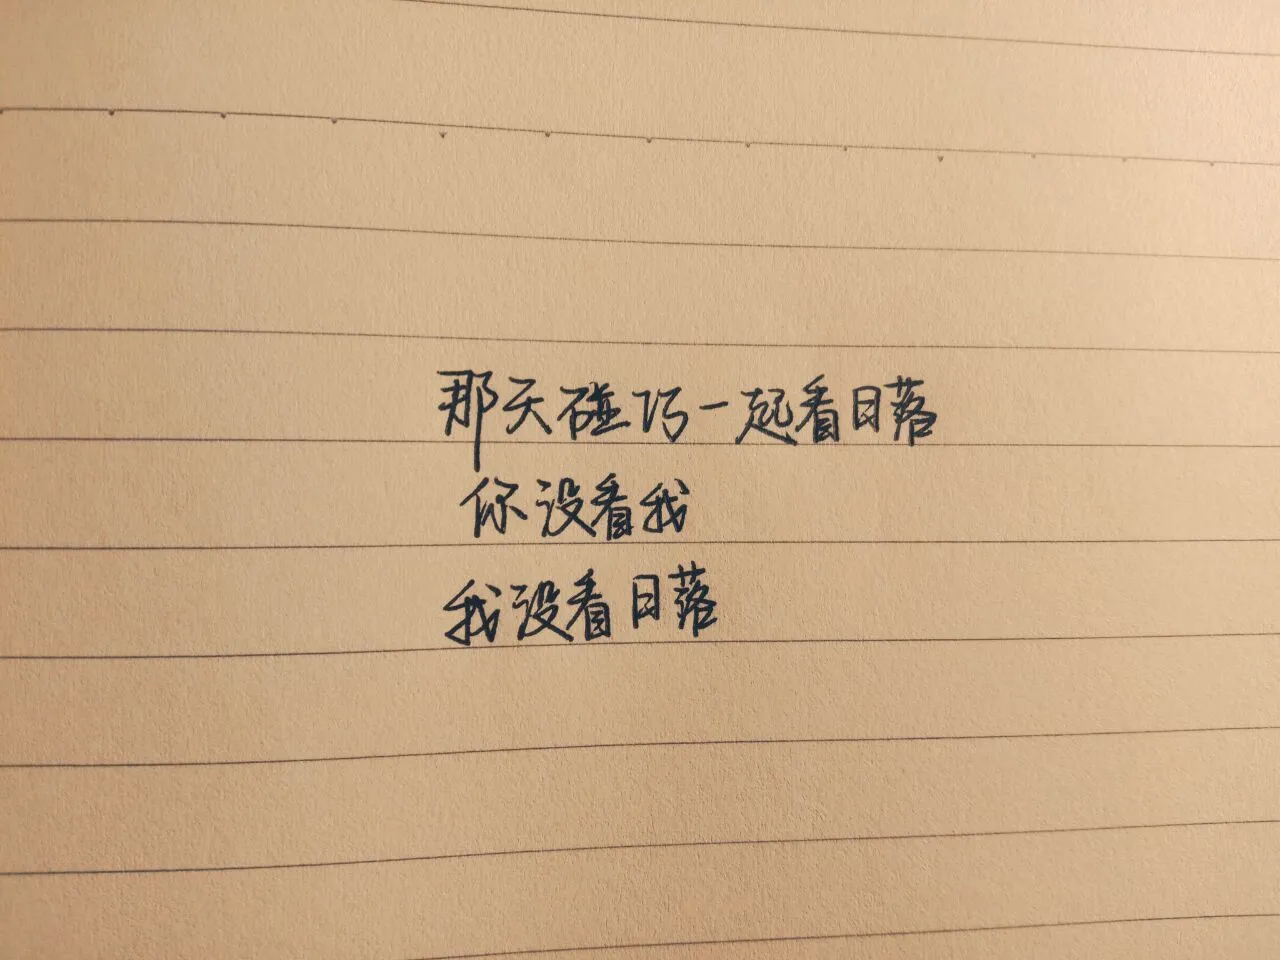 那天碰巧一起看日落
你没看我
我没看日落